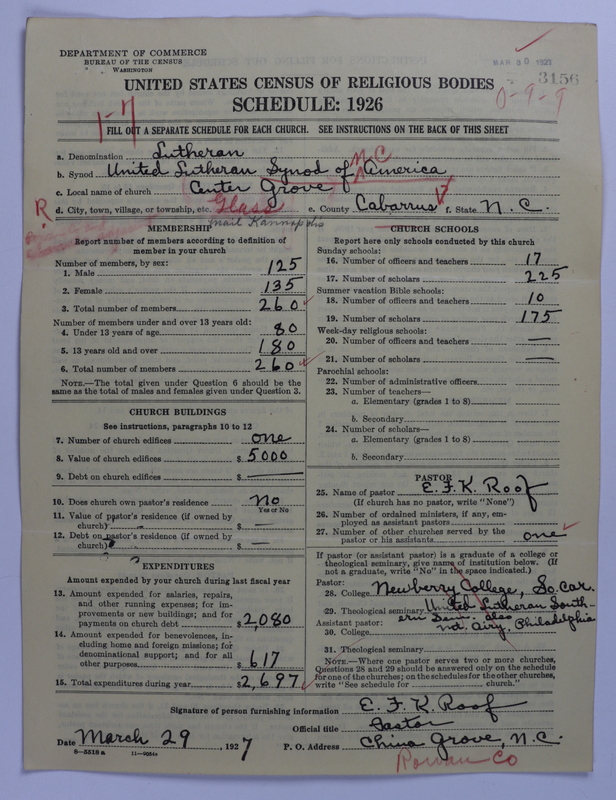 DEPARTMENT OF COMMERCE
BUREAU OF THE CENSUS
WASHINGTON
MAR 30 1927
3156
UNITED STATES CENSUS OF RELIGIOUS BODIES
SCHEDULE: 1926
0-9-9
1-7
FILL OUT A SEPARATE SCHEDULE FOR EACH CHURCH. SEE INSTRUCTIONS ON THE BACK OF THIS SHEET
a. Denomination Lutheran
N.C.
b. Synod United Lutheran Synod of America
c. Local name of church Center Grove
17
R d. City, town, village, or township, etc. Glass e. County Cabarrus f. State N. C.
mail Kannapolis
MEMBERSHIP
Report number of members according to definition of
member in your church
Number of members, by sex:
1. Male 125
2. Female 135
3. Total number of members 260
Number of members under and over 13 years old:
4. Under 13 years of age 80
5. 13 years old and over 180
6. Total number of members 260
NOTE.—The total given under Question 6 should be the
same as the total of males and females given under Question 3.
CHURCH BUILDINGS
See instructions, paragraphs 10 to 12
7. Number of church edifices one
8. Value of church edifices $ 5000
9. Debt on church edifices $ —
10. Does church own pastor's residence No
Yes or No
11. Value of pastor's residence (if owned by
church) $ —
12. Debt on pastor's residence (if owned by
church) $ —
EXPENDITURES
Amount expended by your church during last fiscal year
13. Amount expended for salaries, repairs,
and other running expenses; for im-
provements or new buildings; and for
payments on church debt $ 2,080
14. Amount expended for benevolences, in-
cluding home and foreign missions; for
denominational support; and for all
other purposes $ 617
15. Total expenditures during year $ 2,697
CHURCH SCHOOLS
Report here only schools conducted by this church
Sunday schools:
16. Number of officers and teachers 17
17. Number of scholars 225
Summer vacation Bible schools:
18. Number of officers and teachers 10
19. Number of scholars 175
Week-day religious schools:
20. Number of officers and teachers —
21. Number of scholars —
Parochial schools:
22. Number of administrative officers
23. Number of teachers—
a. Elementary (grades 1 to 8)
b. Secondary
24. Number of scholars—
a. Elementary (grades 1 to 8)
b. Secondary
PASTOR
25. Name of pastor E. F. K. Roof
(If church has no pastor, write "None")
26. Number of ordained ministers, if any, em-
ployed as assistant pastors
27. Number of other churches served by the
pastor or his assistants one
If pastor (or assistant pastor) is a graduate of a college or
theological seminary, give name of institution below. (If
not a graduate, write "No" in the space indicated.)
Pastor:
28. College Newberry College, So. Car.
29. Theological seminary United Lutheran South-
ern Sem. also
Assistant pastor: Mt. Airy, Philadelphia
30. College
31. Theological seminary
NOTE.—Where one pastor serves two or more churches,
Questions 28 and 29 should be answered only on the schedule
for one of the churches; on the schedules for the other churches,
write "See schedule for church."
Signature of person furnishing information E. F. K. Roof
Official title Pastor
Date March 29, 1927 P. O. Address China Grove, N. C.
Rowan Co